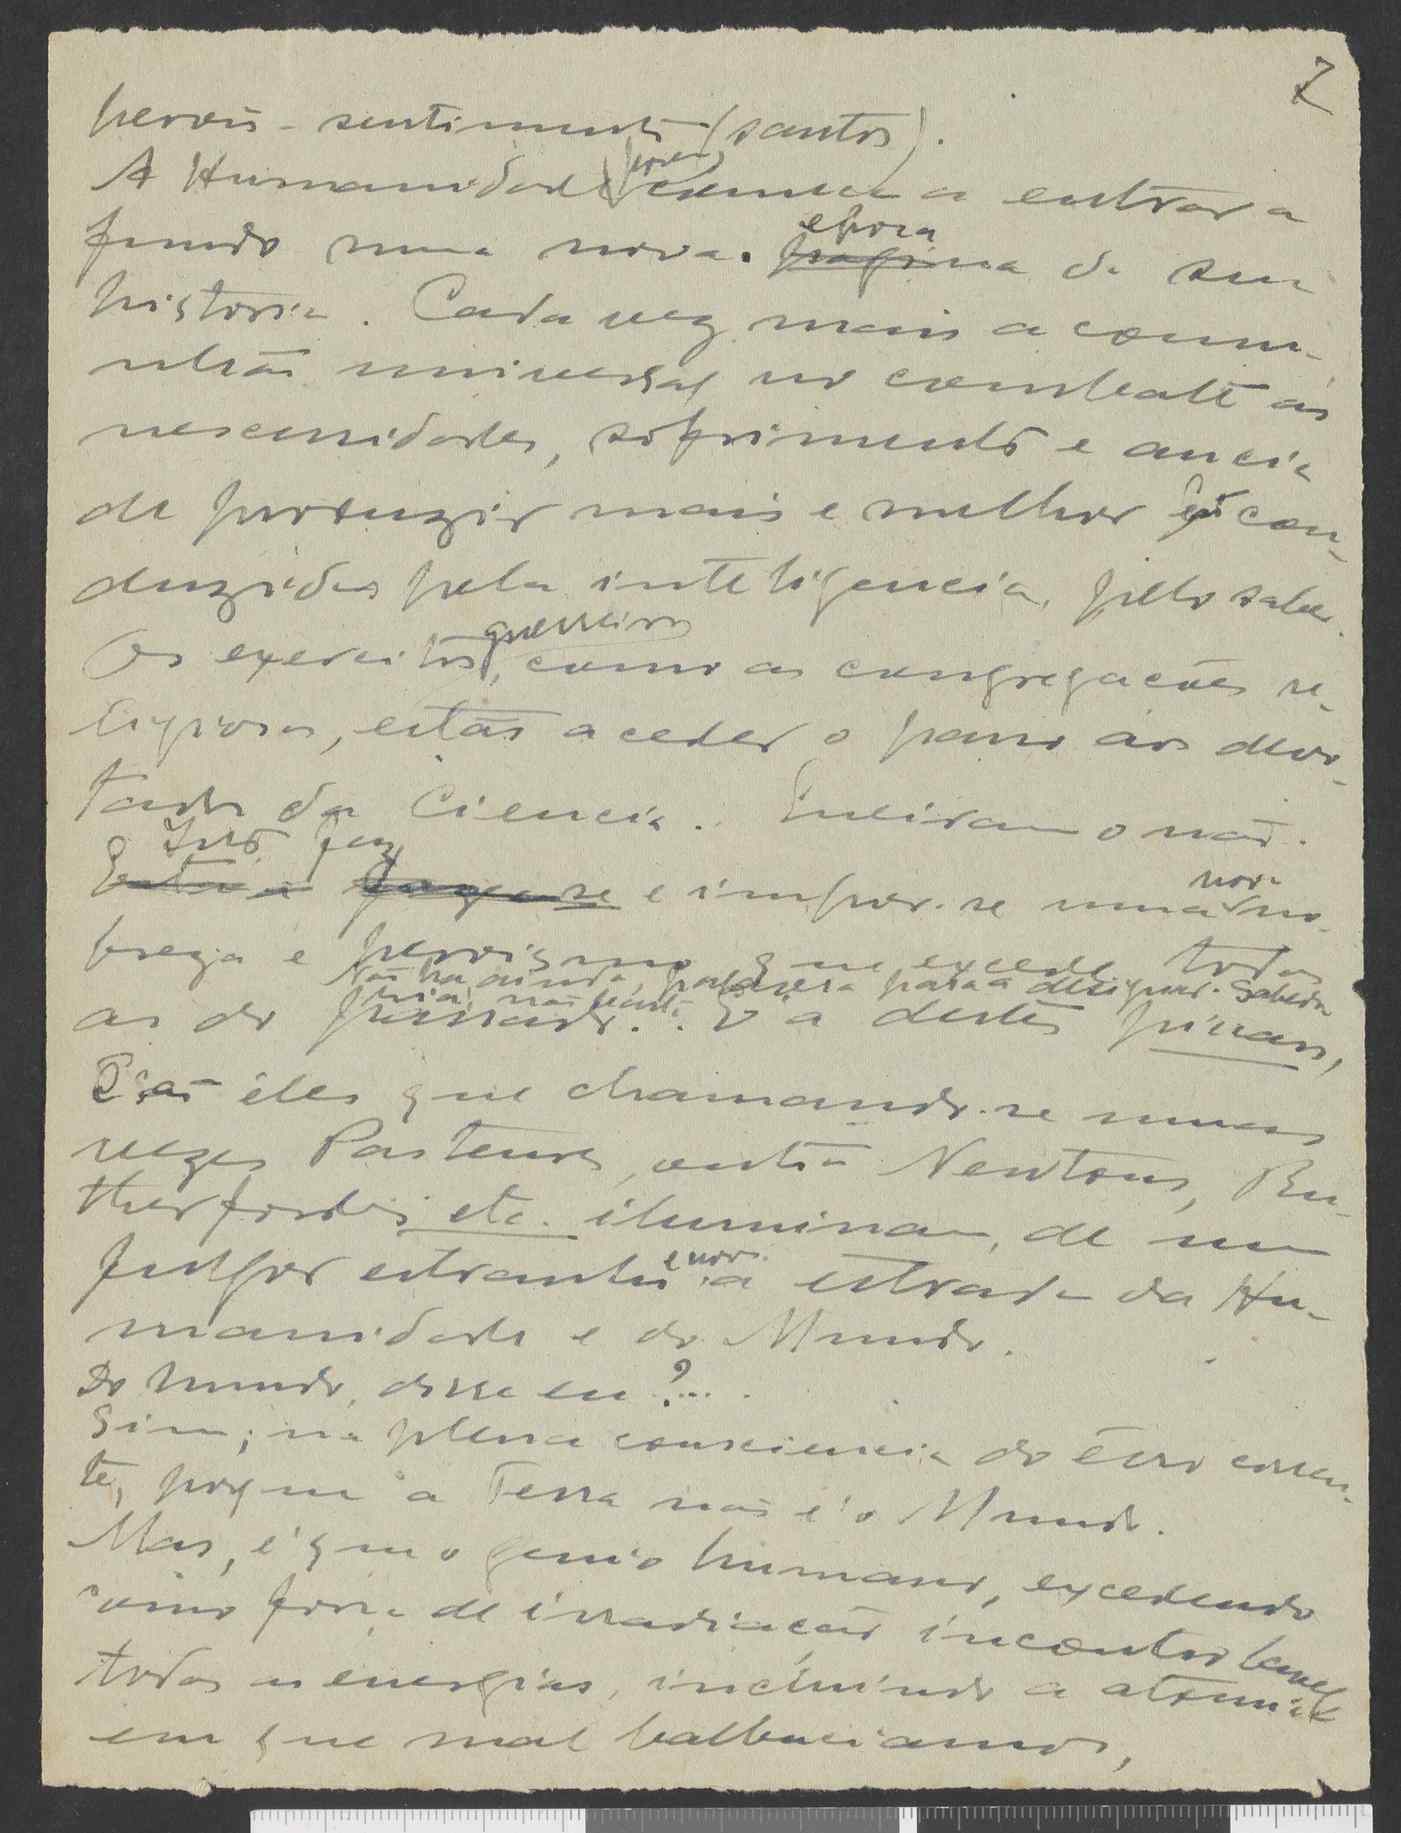 7
herois - sentimento (santos).
A Humanidade, porem, começa a entrar a
fundo numa nova epoca pagina da sua
historia. Cada vez mais a comu-
nhão universal no combate ás
necessidades, sofrimento e ancia
de produzir mais e melhor é con-
duzida pela inteligencia, pelo saber.
Os exercitos guerreiros, como as congregações re-
ligiosas, estão a ceder o passo aos devo-
tados da Ciencia. Queiram o não.
Isto faz
e impor-se uma nova no-
breza e heroismo que excede todas
Não ha ainda palavra para a designar. Sabedo-
ria, não basta
as do passado. a destes
São éles que chamando-se umas
vezes Pasteurs, outras Newtons, Ru-
therfords, etc. iluminam, de um
fulgor estranho e novo a estrada da Hu-
manidade e do Mundo.
Do Mundo, disse eu?...
Sim; na plena consciencia do êrro corren-
te, porque a Terra não é o Mundo.
Mas, é que o genio humano, excedendo
como força de irradiação incontrolavel
todas as energias, incluindo a atomica
em que mal balbuciamos,